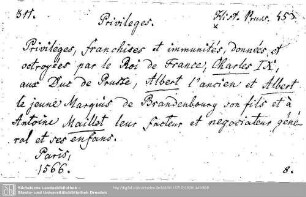 311.
Privileges.
Hist. Pruss. 45
Privileges, franchises et immunités, donnés et
octroyées par le Roi de France, Charles IX,
aux Duc de Prusse, Albert l'ancien et Albert
le jeune Marquis de Brandenbourg son fils et à
Antoine Maillot leur facteur et negociateur géné-
ral et ses enfans.
Paris,
1566.
8.